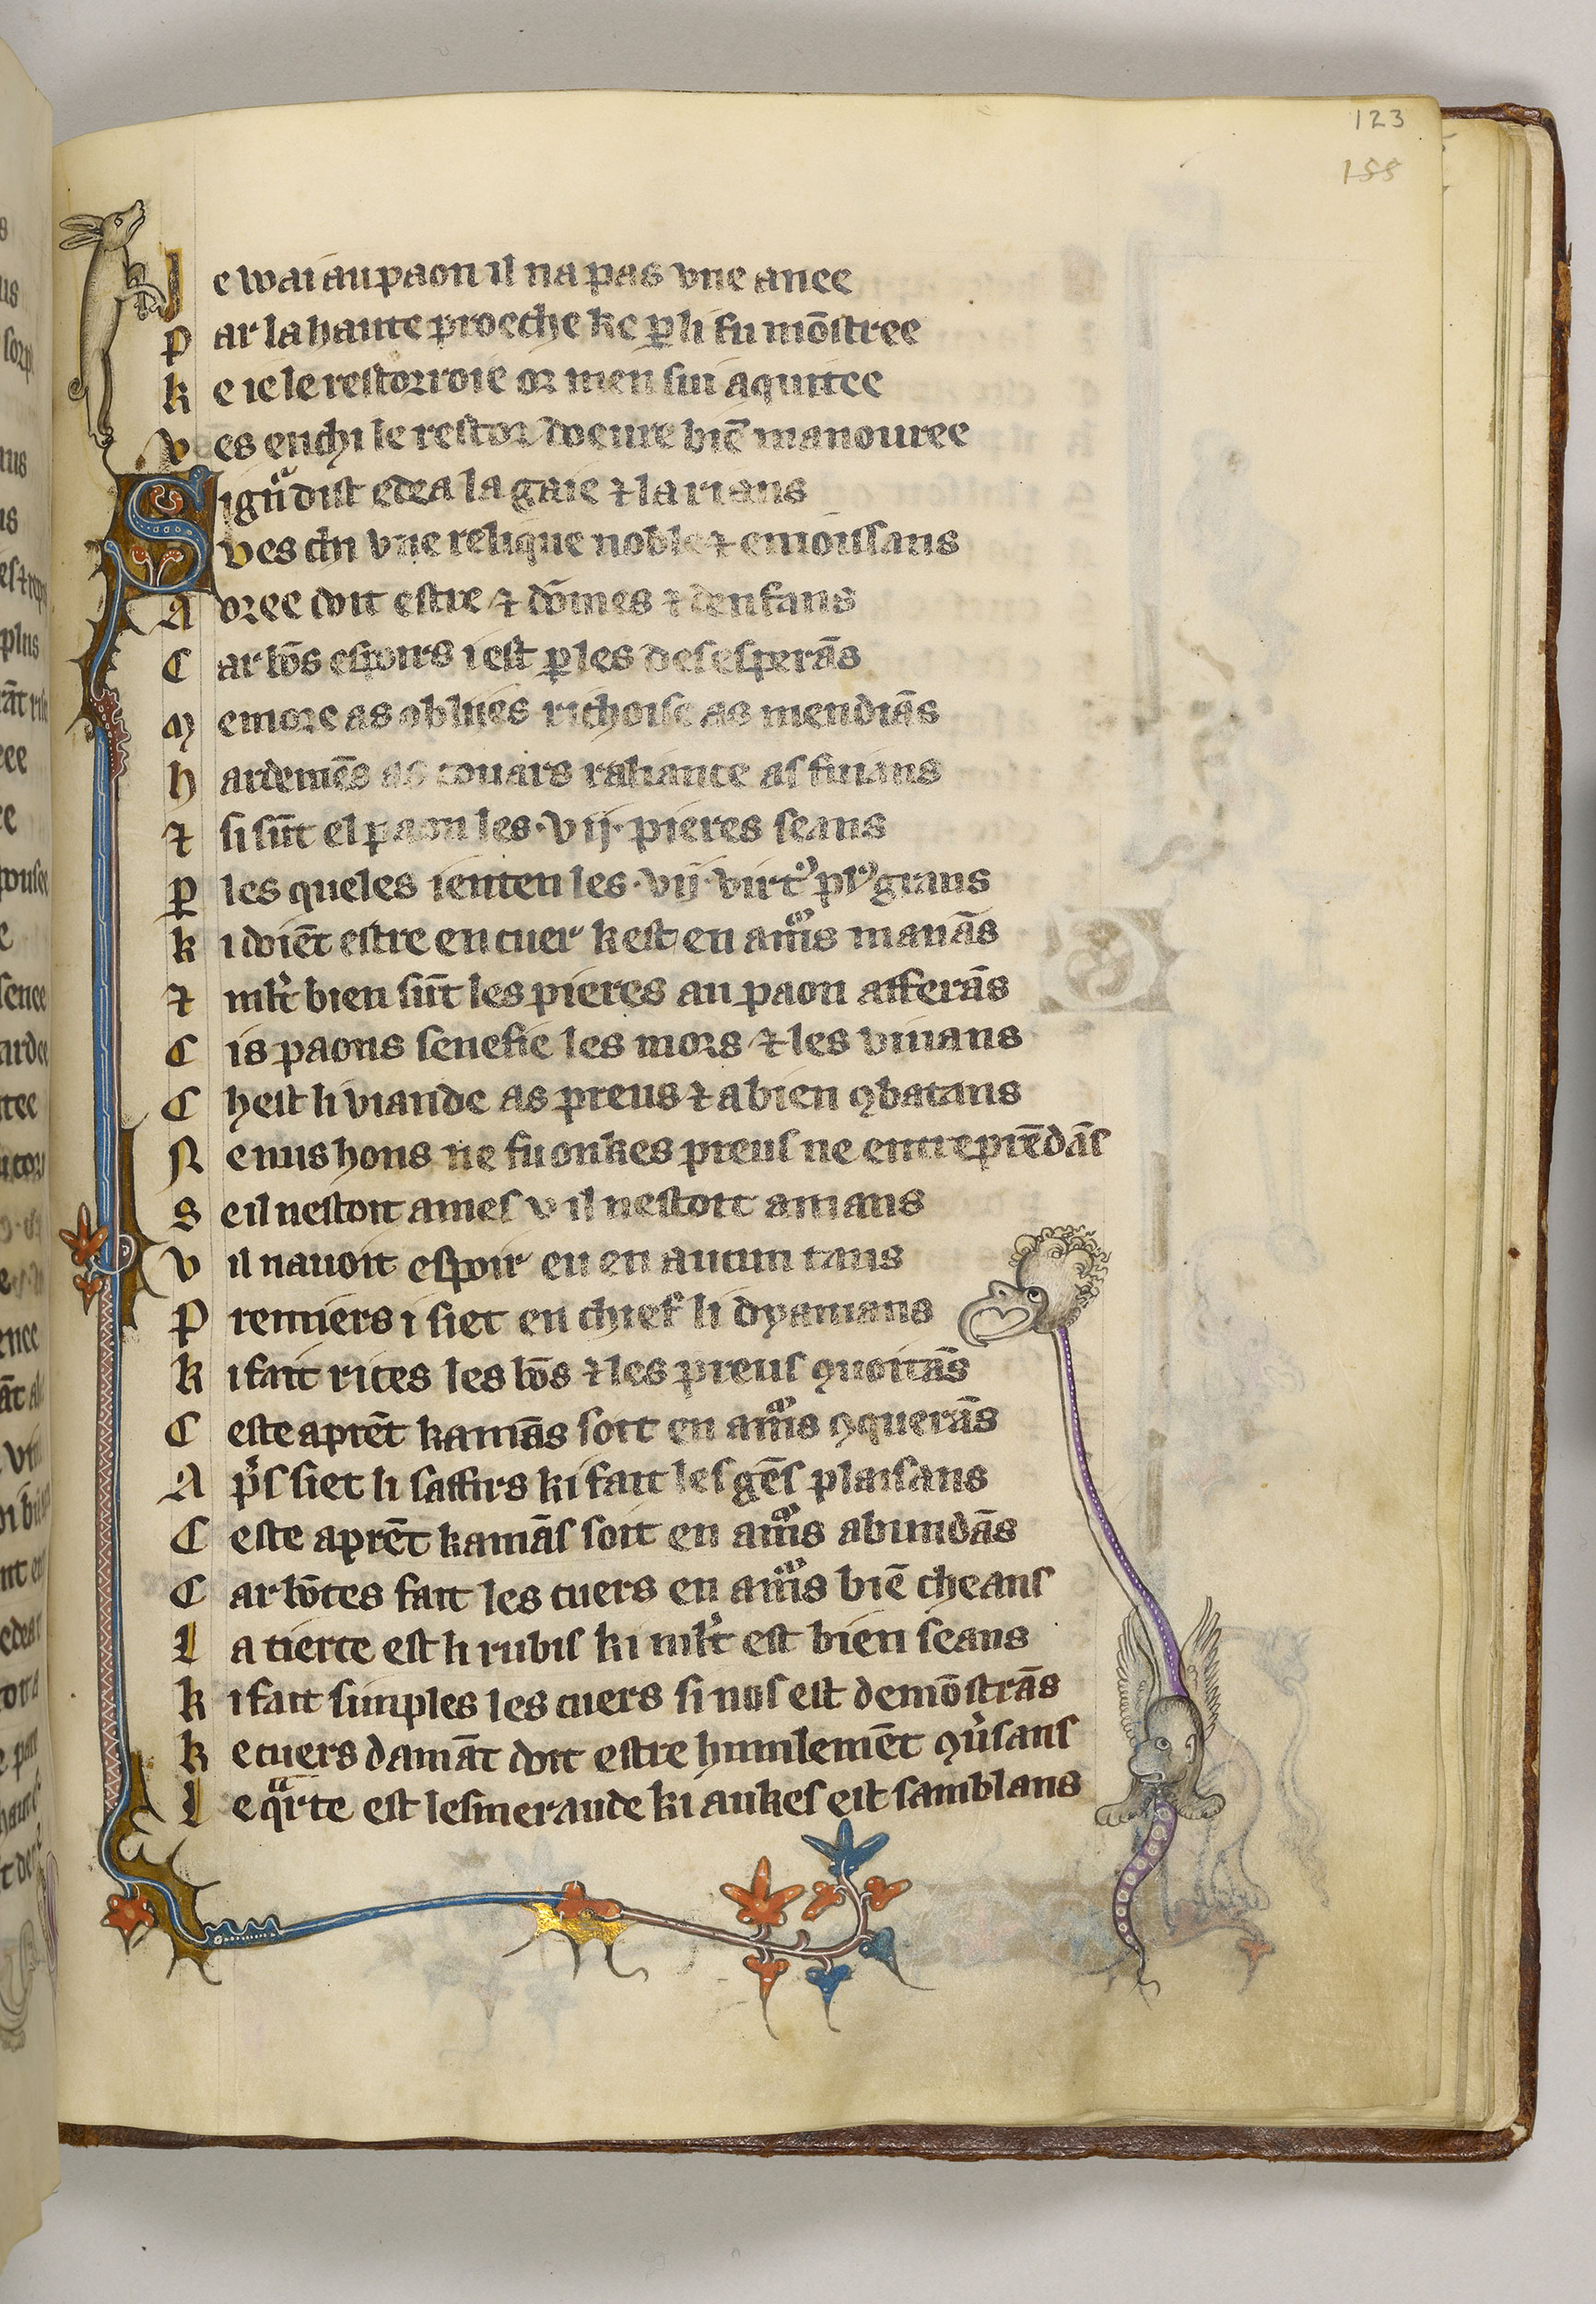 123
188
Je wai au paon il na pas vne anee
Par la haute proeche ke ꝑ li fu mōstree
ke ie le restorroie or men sui aquitee
ves enchi le restor doeure biē manouree
Signᵃ dist edea la gaie ⁊ la rians
ves chi vne relique noble ⁊ emoissans
Aoree doit estre ⁊ dōmes ⁊ denfans
Car bōs espoirs i est ꝑ les desesperās
Memore as oblijes richoise as mendiās
hardemēs as couars raliance as fuians
⁊ si sūt el paon les ·vij· pieres seans
ꝑ les queles ientenc les ·vij· virtꝰ plꝰ grans
ki doiēt estre en cuer kest en amᵒʳs manās
⁊ mlt̄ bien sūt les pieres au paon afferās
Cis paons senefie les mors ⁊ les viuans
Chest li viande as preus ⁊ a bien ꝯbatans
Ne nus hons ne fu onkes preus ne entreprēdās
Se il nestoit ames v il nestoit amans
V il nauoit espoir eu en aucun tans
Premiers i siet en chief li dyamans
ki fait rices les bōs ⁊ les preus ꝯuoitās
Ceste aprēt kamās soit en amᵒʳs ꝯquerās
Apͤs siet li saffirs ki fait les gēs plaisans
Ceste aprēt kamās soit en amᵒʳs abundās
Car bōtes fait les cuers en amᵒʳs biē cheans
La tierce est li rubis ki mlt̄ est bien seans
ki fait simples les cuers si nos est demōstrās
ke cuers damāt doit estre humlemēt ꝯuͥsans
Le qᵃrte est lesmeraude ki aukes est samblans